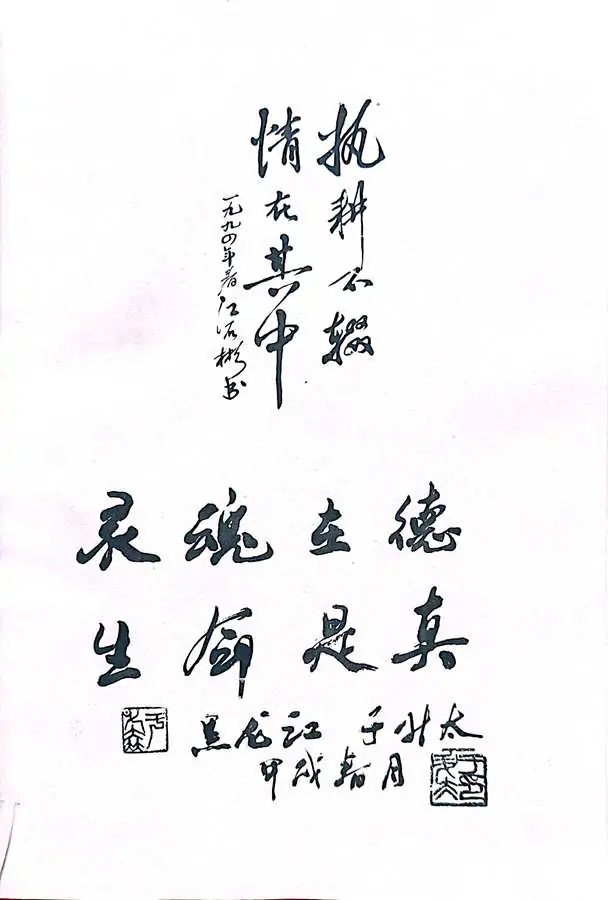 执耕不辍
情在其中
一九九四年春江沅彬书
灵魂在德
生命是真
黑龙江 于叶太
甲戌春月